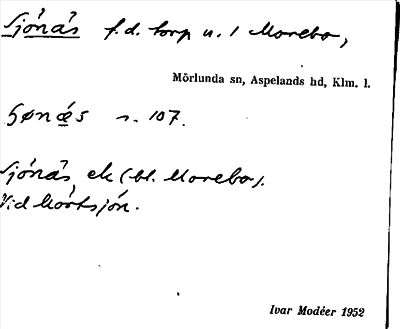 Sjönäs f.d. torp u. / Morebo,
Mörlunda sn, Aspelands hd, Klm. l.
Sønæs n. 107.
Sjönäs, ek (bl. Morebo).
Vid Mörtsjön.
Ivar Modéer 1952